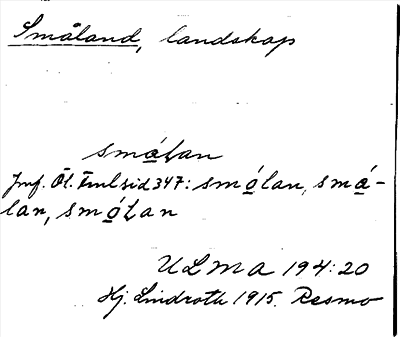 Småland, landskap
småLan
Jmf. Öl. Fml sid 347: smólan, små-
lan, smóLan
ULMA 194:20
Hj. Lindroth 1915. Resmo